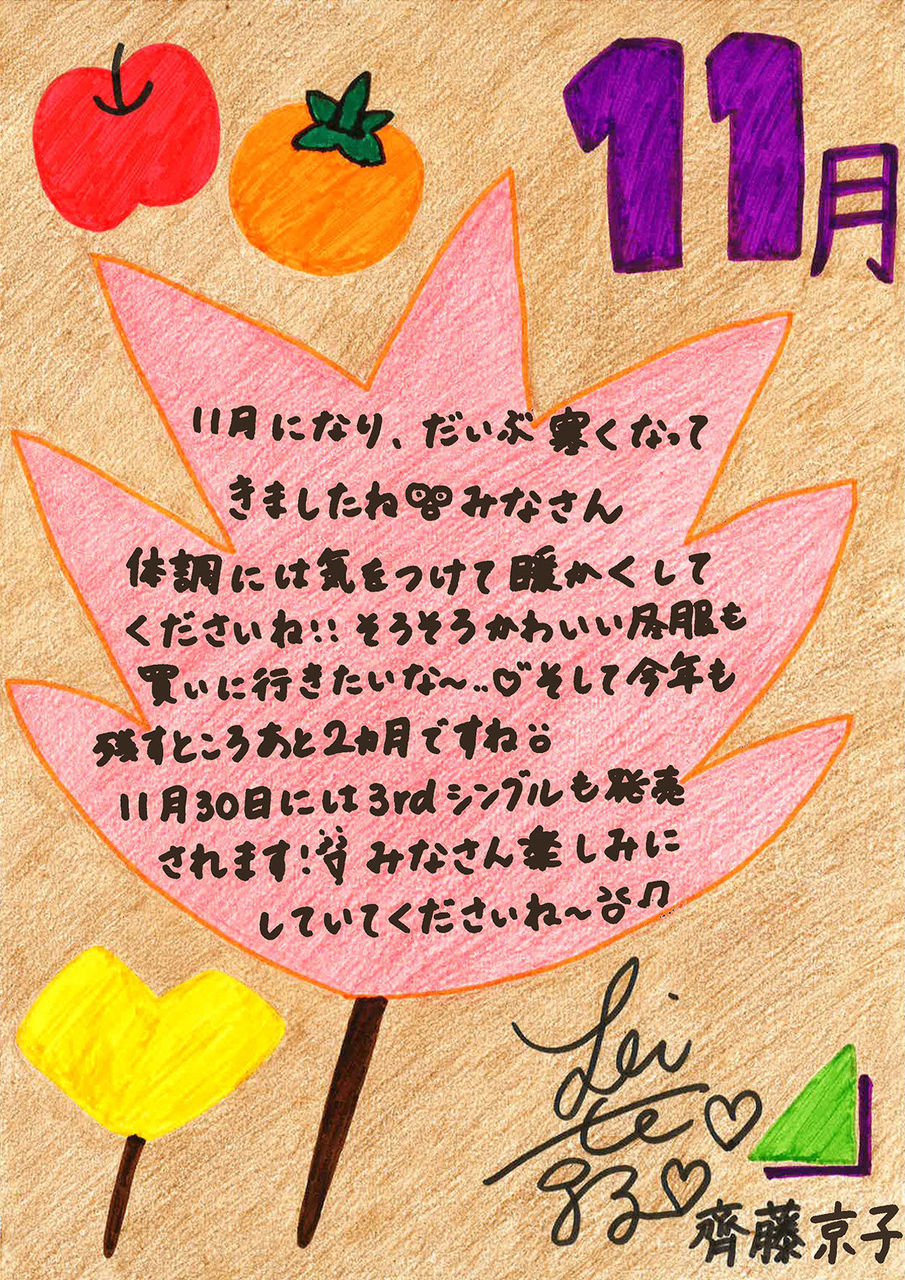 11月
11月になり、だいぶ寒くなって
きましたね みなさん
体調には気をつけて暖かくして
くださいね!! そろそろかわいい冬服も
買いに行きたいな〜..♡そして今年も
残すところあと2ヵ月ですね
11月30日には3rdシングルも発売
されます! みなさん楽しみに
していてくださいね〜 ♫
齊藤京子